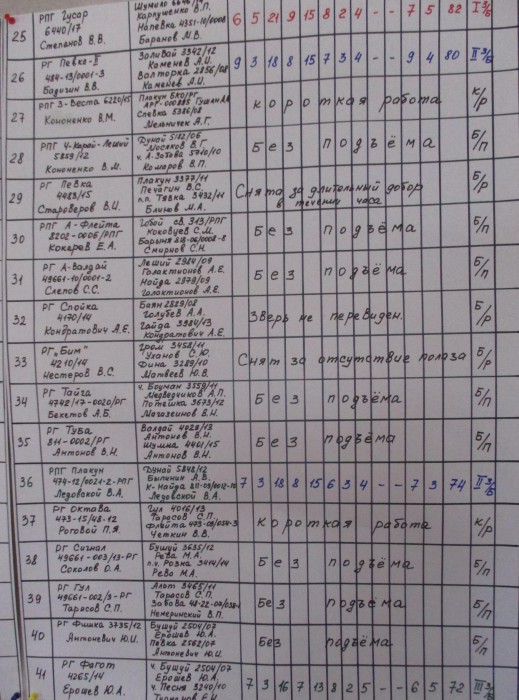 25 РПГ Гусар
6440/17
Степанов В.В.
Карлушенко В.П.
Напевка 4351-10/0008
Баранов М.В.
6 5 21 9 15 8 2 4 - - 7 5 82 I
26 РГ Певко-II
484-13/0001-3
Бодягин В.В.
Заливай 3342/12
Каменев А.И.
Волторка 2856/08
Каменев А.И.
9 3 18 8 15 7 3 4 - - 9 4 80 II
27 РПГ З-Веста 6220/15
Кононенко В.М.
Плакун ВКО/РГ
Слевка 5386/08
Мельничек А.Г.
Короткая работа К/р
28 РПГ Ч-Карай-Леший
5859/12
Кононенко В.М.
Дунай 5182/06
Мосяков В.Г.
ч. А-Забава 5710/10
Комаров В.П.
Без подъёма Б/п
29 РГ Певка
4483/15
Староверов В.И.
Плакун 3377/11
Печугин В.С.
п.п. Тявка 3432/11
Блинов М.А.
Снята за длительный добор
в течении часа Б/р
30 РПГ А-Флейта
8202-0006/РПГ
Кокарев Е.А.
Гобой св. 313/РПГ
Коковцев С.М.
Смирнов С.Н.
Без подъёма Б/п
31 РГ А-Валдай
49661-10/0001-2
Слепов С.С.
Леший 2924/09
Галактионов А.Е.
Найда 2979/09
Галактионов А.Е.
Без подъёма Б/п
32 РГ Спойка
4170/14
Кондратович А.Е.
Баян 2829/08
Голубев А.А.
Гайда 3384/13
Кондратович А.Е.
Зверь не перевиден. Б/р
33 РГ „Бим"
4210/14
Нестеров В.С.
Гром 3458/11
Уханов С.Ю.
Фина 3289/10
Матвеев Ю.В.
Снят за отсутствие полаза Б/р
34 РГ Тайга
4742/17-0020/РГ
Бекетов А.Б.
ч. Боуман 3559/11
Медведчиков А.П.
Потешка 3673/12
Без подъёма Б/п
35 РГ Туба
811-0002/РГ
Антонов В.Н.
Валдай 4028/13
Антонов В.Н.
Шумка 4401/15
Антонов В.Н.
Без подъёма Б/п
36 РПГ Плакун
474-12/0021-2-РПГ
Ледовской В.А.
Дунай 5848/12
Былинин А.В.
Ледовской В.А.
7 3 18 8 15 6 3 4 - - 7 3 74 II
37 РГ Октава
473-15/48-12
Роговой П.Я.
Гул 4016/13
Тарасов С.П.
Четкин В.В.
Короткая работа К/р
38 РГ Сигнал
49661-003/13-РГ
Соколов О.А.
Бушуй 3635/12
Рева М.А.
п.ч. Розка 3414/14
Рева М.А.
Без подъёма Б/п
39 РГ Гул
49661-002/3-РГ
Тарасов С.П.
Альт 3465/11
Тарасов С.П.
Немеринский В.П.
Без подъёма Б/п
40 РГ Фишка 3735/12
Антоневич Ю.И.
Бушуй 2504/07
Ерошев Ю.А.
Певка 2562/07
Антоневич Ю.И.
Без подъёма Б/п
41 РГ Фагот
4265/14
Ерошев Ю.А.
ч. Бушуй 2504/07
Ерошев Ю.А.
ч. Песня 3240/10
7 3 16 7 13 8 2 5 - - 6 5 72 III